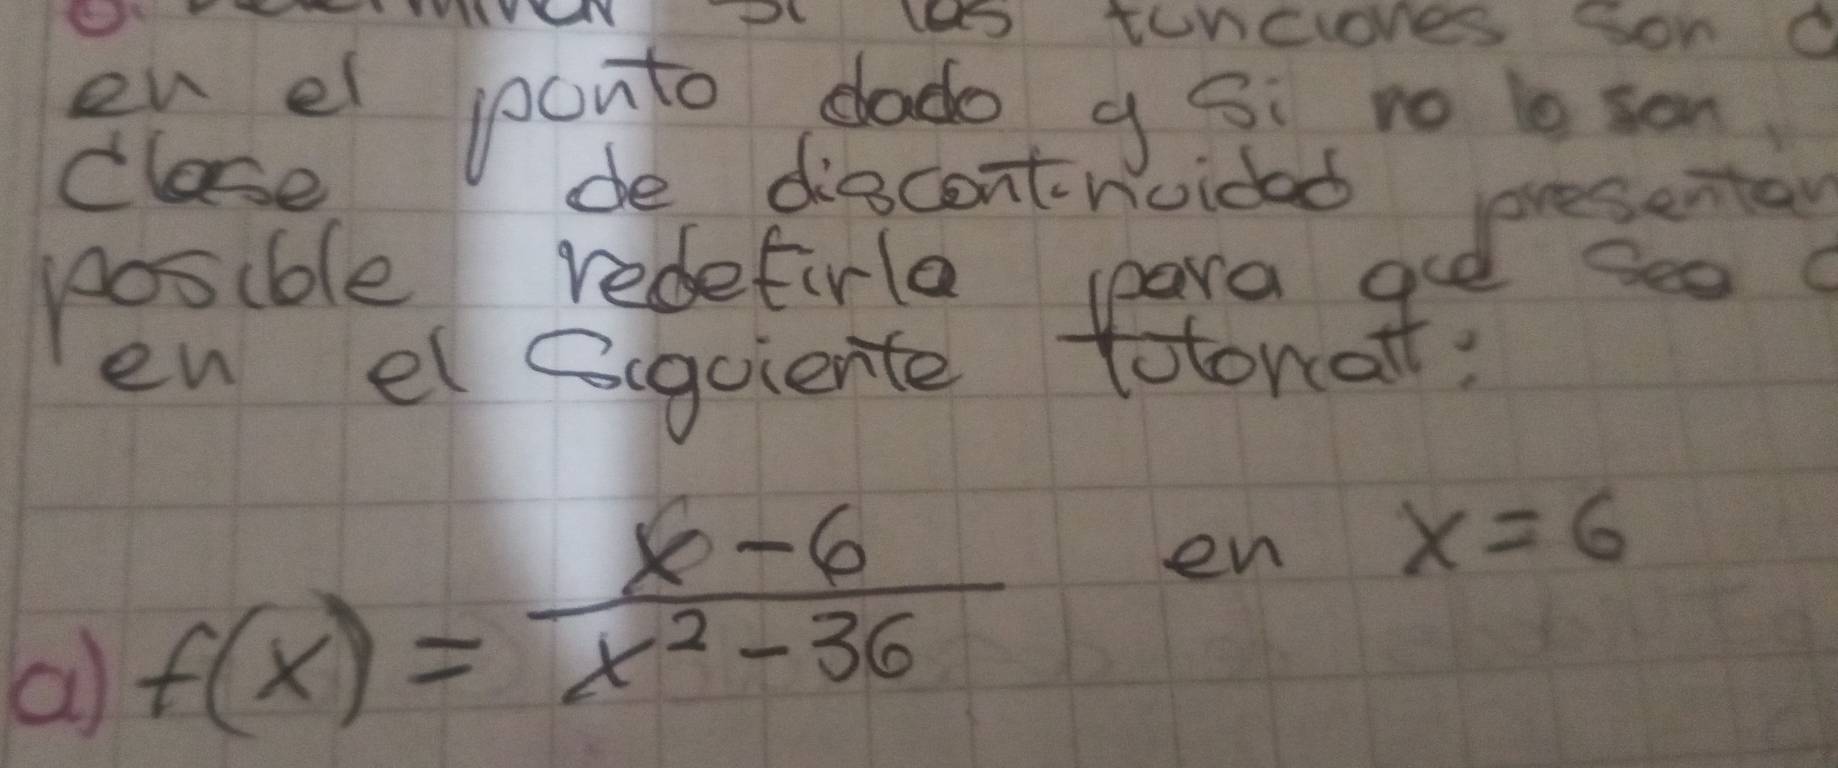 si las funciones son
en el ponto dado y si no lo son,
clase de discontinuidad presentan
posible redefirla para que sea
en el siguiente tutorial:
a) f(x) = \frac{x-6}{x^2-36} en x=6